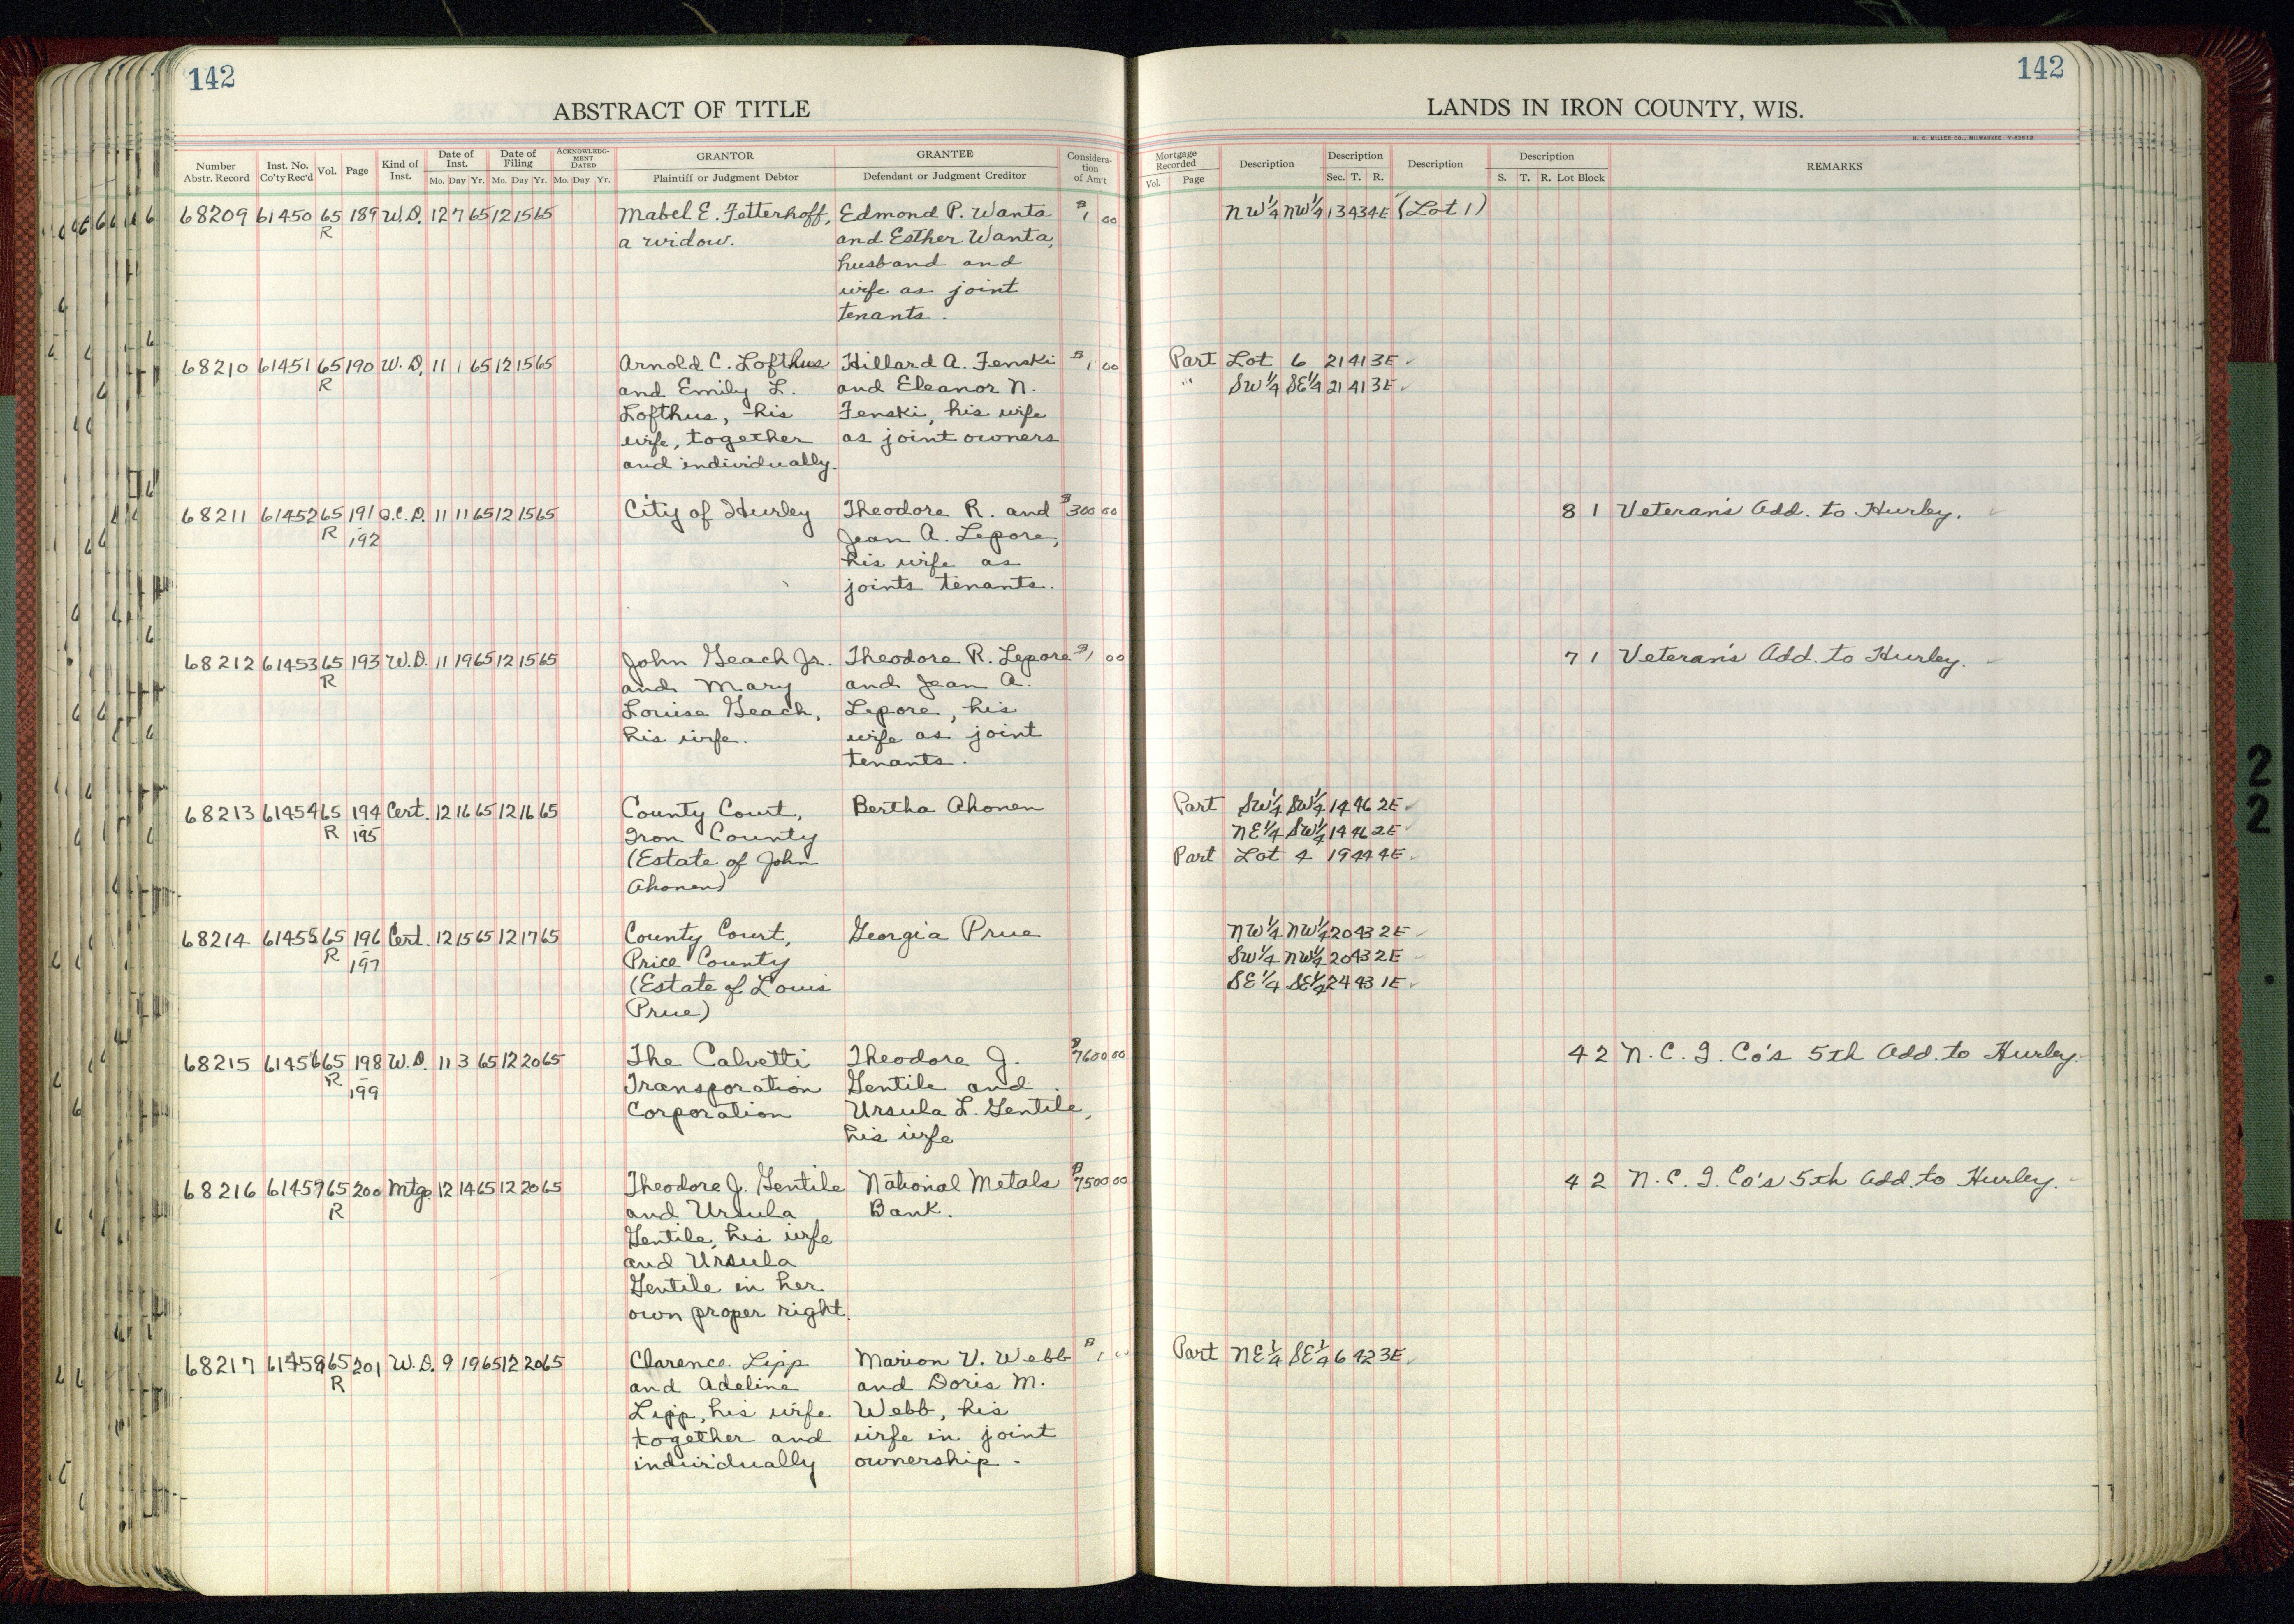 142
ABSTRACT OF TITLE
Number Abstr. Record Inst. No. Co'ty Rec'd Vol. Page Kind of Inst. Date of Inst. Mo. Day Yr. Date of Filing Mo. Day Yr. ACKNOWLEDGMENT DATED Mo. Day Yr. GRANTOR Plaintiff or Judgment Debtor GRANTEE Defendant or Judgment Creditor Consideration of Am't
68209 61450 65 189 W.D. 12 7 65 12 15 65 Mabel E. Fetterhoff, Edmond P. Wanta $1 00
R a widow. and Esther Wanta,
husband and
wife as joint
tenants.
68210 61451 65 190 W.D. 11 1 65 12 15 65 Arnold C. Lofthus Hillard A. Fenski $1 00
R and Emily L. and Eleanor N.
Lofthus, his Fenski, his wife
wife, together as joint owners
and individually.
68211 61452 65 191 Q.C.D. 11 11 65 12 15 65 City of Hurley Theodore R. and $300 00
R - 192 Jean A. Lepore,
his wife as
joints tenants.
68212 61453 65 193 W.D. 11 19 65 12 15 65 John Geach Jr. Theodore R. Lepore $1 00
R and Mary and Jean A.
Louise Geach, Lepore, his
his wife. wife as joint
tenants.
68213 61454 65 194 Cert. 12 16 65 12 16 65 County Court, Bertha Ahonen
R - 195 Iron County
(Estate of John
Ahonen)
68214 61455 65 196 Cert. 12 15 65 12 17 65 County Court, Georgia Prue
R - 197 Price County
(Estate of Louis
Prue)
68215 61456 65 198 W.D. 11 3 65 12 20 65 The Calvetti Theodore J. $7600 00
R - 199 Transporation Gentile and
Corporation Ursula L. Gentile,
his wife
68216 61457 65 200 Mtge. 12 14 65 12 20 65 Theodore J. Gentile National Metals $7500 00
R and Ursula Bank.
Gentile, his wife
and Ursula
Gentile in her
own proper right.
68217 61458 65 201 W.D. 9 19 65 12 20 65 Clarence Lipp Marion V. Webb $1 00
R and Adeline and Doris M.
Lipp, his wife Webb, his
together and wife in joint
individually ownership.
142
LANDS IN IRON COUNTY, WIS.
H. C. MILLER CO., MILWAUKEE
Mortgage Recorded Vol. Page Description Description Sec. T. R. Description Description S. T. R. Lot Block REMARKS
NW¼ NW¼ 13 43 4E (Lot 1)
Part Lot 6 21 41 3E ✓
" SW¼ SE¼ 21 41 3E ✓
8 1 Veteran's Add. to Hurley. ✓
7 1 Veteran's Add. to Hurley. ✓
Part SW¼ SW¼ 14 46 2E ✓
NE¼ SW¼ 14 46 2E ✓
Part Lot 4 19 44 4E ✓
NW¼ NW¼ 20 43 2E ✓
SW¼ NW¼ 20 43 2E ✓
SE¼ SE¼ 24 43 1E ✓
4 2 N. C. I. Co's 5th Add. to Hurley.
4 2 N. C. I. Co's 5th Add. to Hurley.
Part NE¼ SE¼ 6 42 3E ✓
2
2